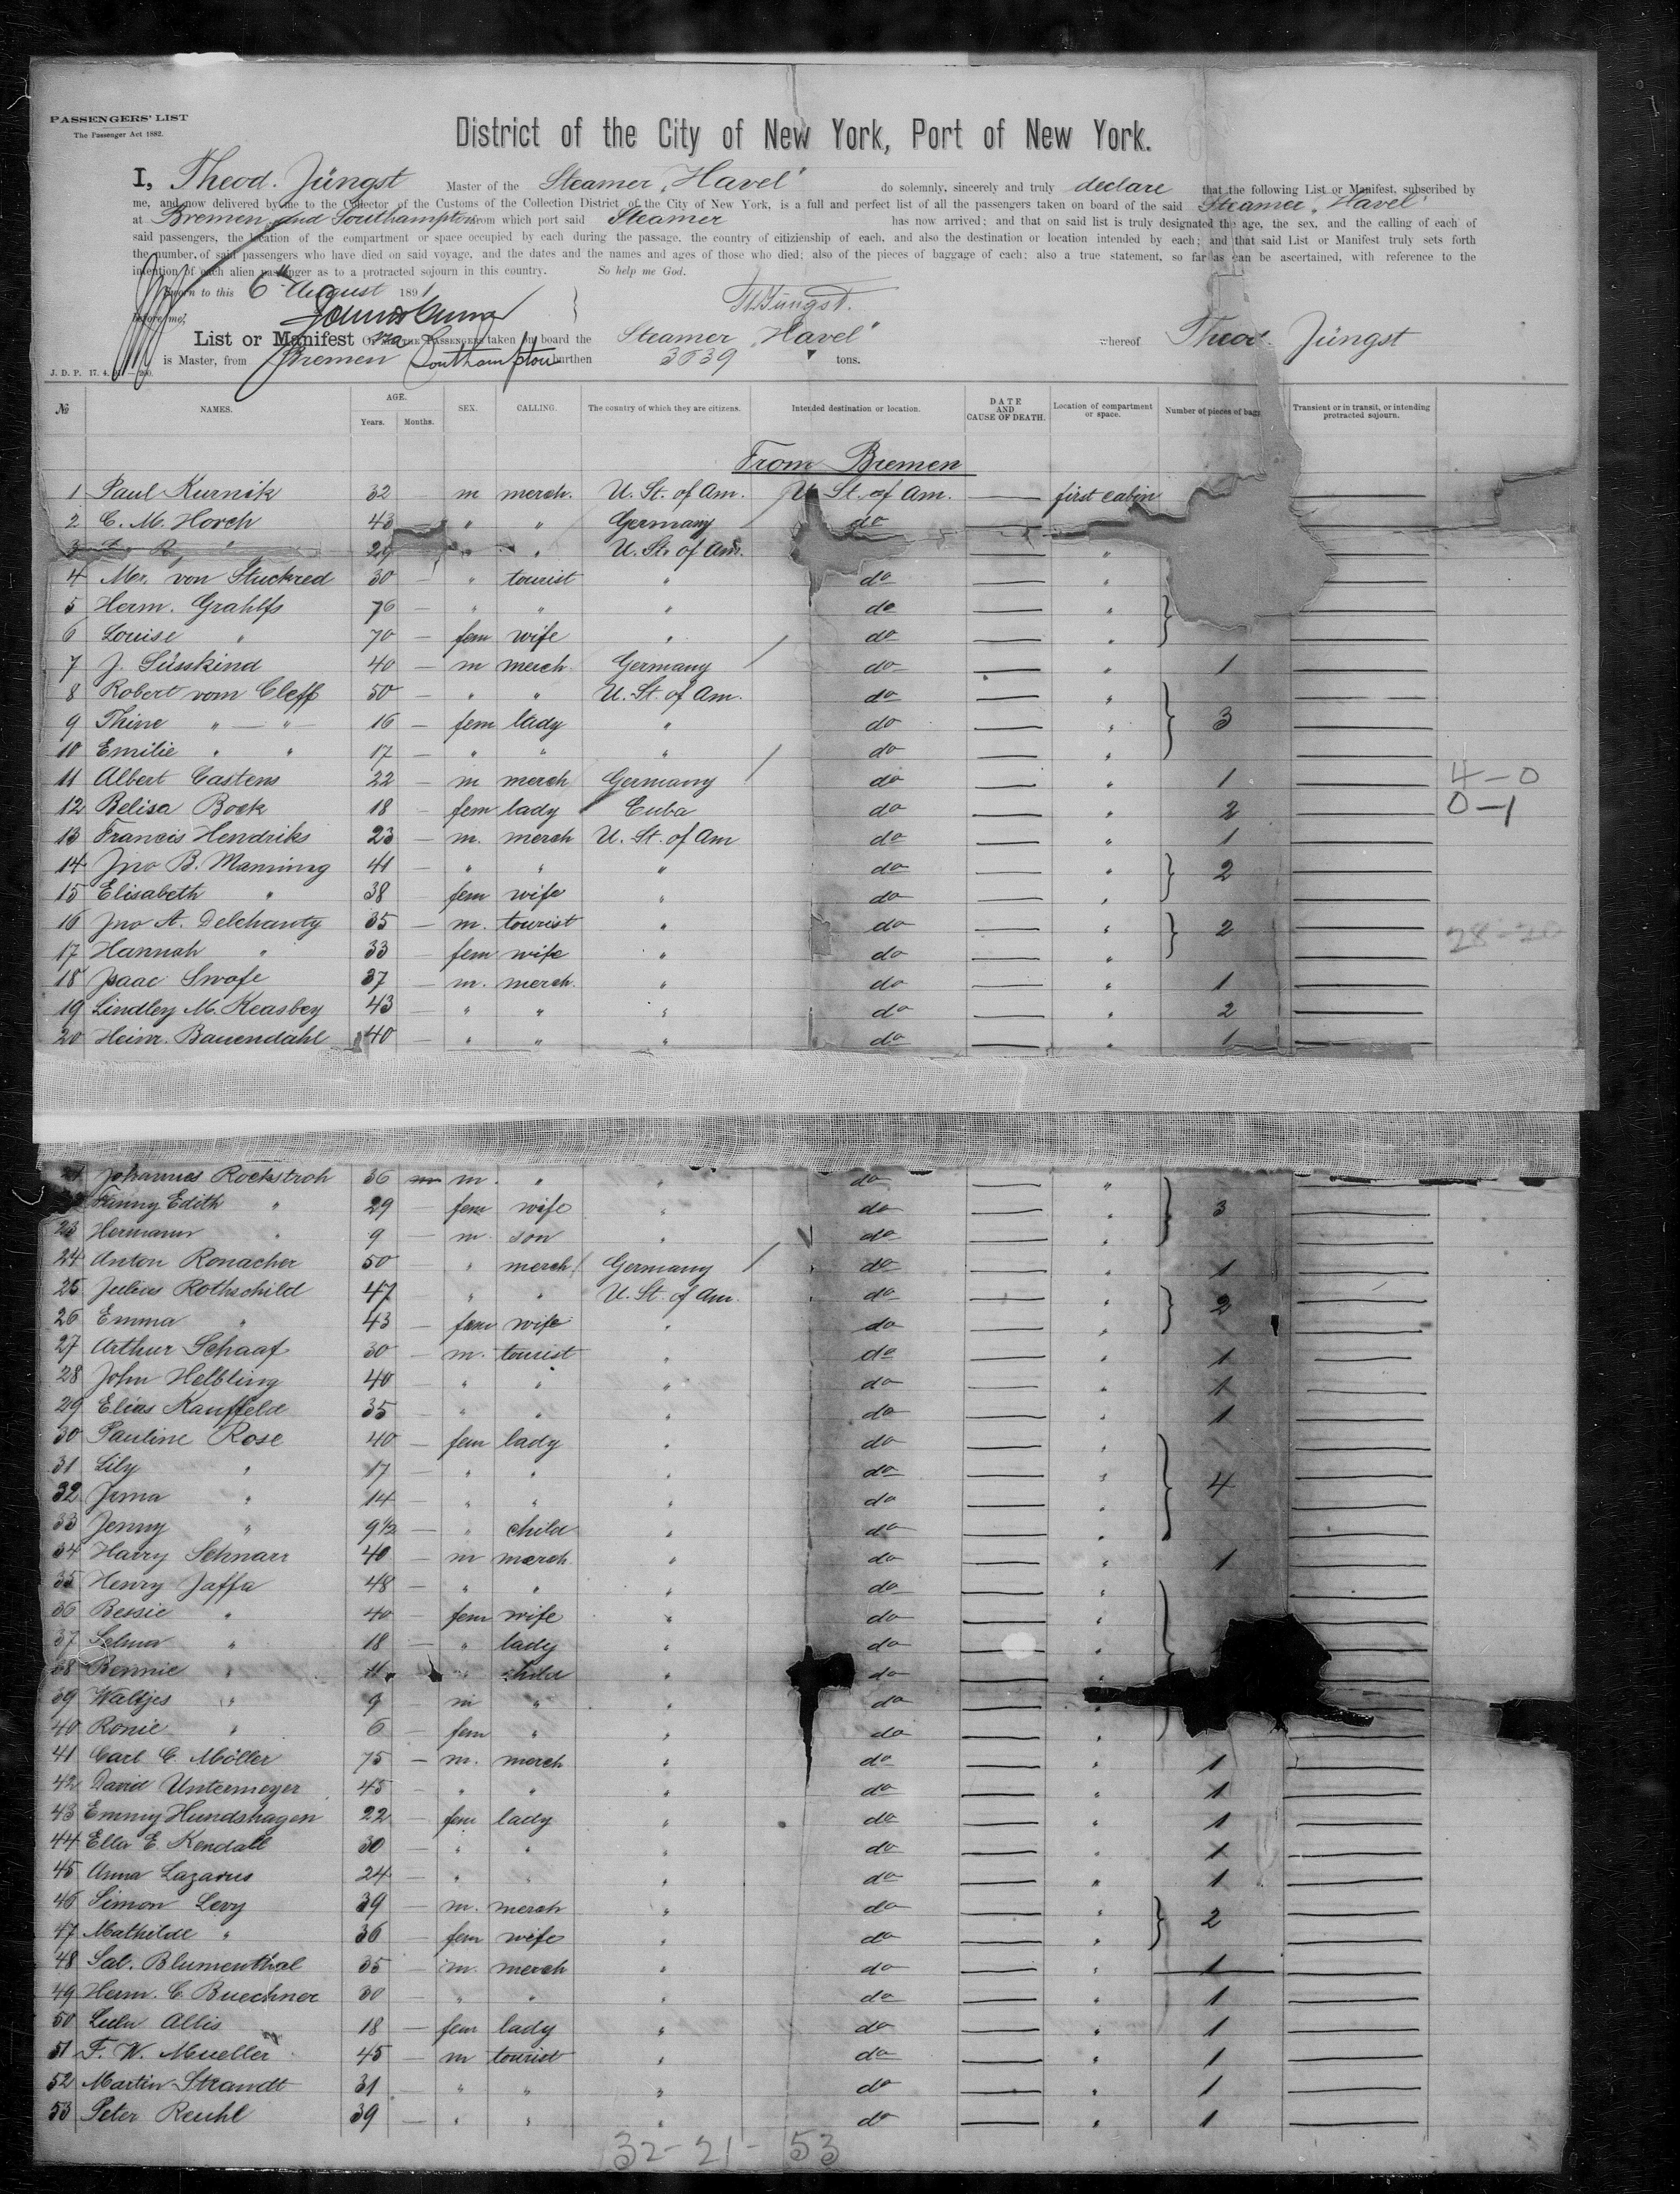 PASSENGERS' LIST
The Passenger Act 1882.
District of the City of New York, Port of New York.
I, Theod. Jüngst Master of the Steamer „Havel" do solemnly, sincerely and truly declare that the following List or Manifest, subscribed by
me, and now delivered by me to the Collector of the Customs of the Collection District of the City of New York, is a full and perfect list of all the passengers taken on board of the said Steamer „Havel"
at Bremen and Southampton from which port said Steamer has now arrived; and that on said list is truly designated the age, the sex, and the calling of each of
said passengers, the location of the compartment or space occupied by each during the passage, the country of citizienship of each, and also the destination or location intended by each; and that said List or Manifest truly sets forth
the number, of said passengers who have died on said voyage, and the dates and the names and ages of those who died; also of the pieces of baggage of each; also a true statement, so far as can be ascertained, with reference to the
intention of each alien passenger as to a protracted sojourn in this country. So help me God.
Sworn to this 6 August 1891
Th. Jüngst.
before me,
List or Manifest OF ALL THE PASSENGERS taken on board the Steamer „Havel" whereof Theod. Jüngst
is Master, from Bremen Southampton burthen tons.
J. D. P. 17. 4.
№ NAMES. AGE. Years. Months. SEX. CALLING. The country of which they are citizens. Intended destination or location. DATE AND CAUSE OF DEATH. Location of compartment or space. Number of pieces of bag Transient or in transit, or intending protracted sojourn.
From Bremen
1 Paul Kurnik 32 — m merch. U. St. of Am. U. St. of Am. — first cabin —
2 C. M. Horch 43 " " Germany do —
3 29 " " U. St. of Am. — " —
4 Mr. von Stuckred 30 — " tourist " do — " —
5 Herm. Grahlfs 76 — " " " do — " —
6 Louise " 70 — fem wife " do — " —
7 J. Süsskind 40 — m merch. Germany do — " 1 —
8 Robert vom Cleff 50 — " " U. St. of Am. do — " —
9 Thine " — " 16 — fem lady " do — " 3 —
10 Emilie " " 17 — " " " do — " —
11 Albert Castens 22 — m merch Germany do — " 1 — 4-0
12 Belisa Bock 18 — fem lady Cuba do — " 2 — 0-1
13 Francis Hendriks 23 — m. merch U. St. of Am do — " 1 —
14 Jno B. Manning 41 — " " " do — " 2 —
15 Elisabeth " 38 — fem wife " do — " —
16 Jno A. Delehanty 35 — m. tourist " do — " 2 — 28-20
17 Hannah " 33 — fem wife " do — " —
18 Isaac Swope 37 — m. merch. " do — " 1 —
19 Lindley M. Keasbey 43 — " " " do — " 2 —
20 Heinr. Bauendahl 40 — " " " do — " 1 —
21 Johannes Rockstroh 36 m m. " " do — " —
Fanny Edith " 29 — fem wife " do — " 3 —
23 Hermann " 9 — m. son " do — " —
24 Anton Ronacher 50 — " merch Germany do — " 1 —
25 Julius Rothschild 47 — " " U. St. of Am. do — " —
26 Emma " 43 — fem wife " do — " 2 —
27 Arthur Schaaf 30 — m. tourist " do — " 1 —
28 John Helbling 40 — " " " do — " 1 —
29 Elias Kauffeld 35 — " " " do — " 1 —
30 Pauline Rose 40 — fem lady " do — " —
31 Lily " 17 — " " " do — " 4 —
32 Irma " 14 — " " " do — " —
33 Jenny " 9½ — " child " do — " —
34 Harry Schnarr 40 — m merch. " do — " 1 —
35 Henry Jaffa 48 — " " " do — " —
36 Bessie " 40 — fem wife " do — " —
37 Selma " 18 — " lady " do — " —
38 Bennie " 11 " child " do — " —
39 Waltjes " 9 — m " " do — " —
40 Ronie " 6 — fem " " do — " —
41 Carl C. Möller 75 — m. merch " do — " 1 —
42 David Untermeyer 45 — " " " do — " 1 —
43 Emmy Hundshagen 22 — fem lady " do — " 1 —
44 Ella E. Kendall 30 — " " " do — " 1 —
45 Anna Lazarus 24 — " " " do — " 1 —
46 Simon Levy 39 — m. merch " do — " 2 —
47 Mathilde " 36 — fem wife " do — " —
48 Sal. Blumenthal 35 — m. merch " do — " 1 —
49 Herm. C. Buechner 30 — " " " do — " 1 —
50 Lulu Allis 18 — fem lady " do — " 1 —
51 F. W. Mueller 45 — m tourist " do — " 1 —
52 Martin Strandt 31 — " " " do — " 1 —
53 Peter Reuhl 39 — " " " do — " 1 —
32-21-53